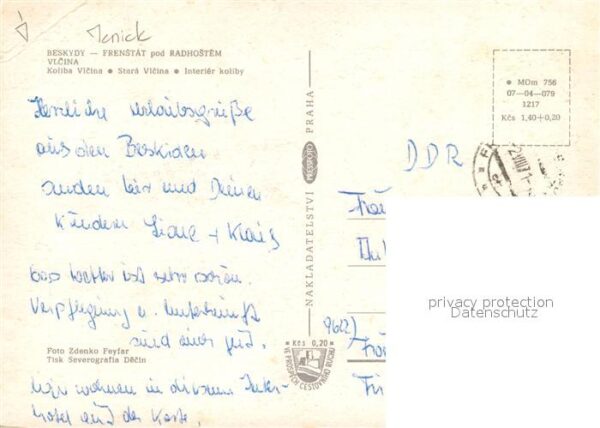 BESKYDY — FRENŠTÁT pod RADHOŠTĚM
VLČINA
Koliba Vlčina ● Stará Vlčina ● Interiér koliby
Herzliche Urlaubsgrüße
aus den Beskiden
senden dir und Deinen
Kindern
+ Klaus
Das Wetter ist sehr schön.
Verpflegung u. Unterkunft
sind auch gut.
Wir wohnen in diesem Inter-
hotel auf der Karte.
Foto Zdenko Feyfar
Tisk Severografia Děčín
NAKLADATELSTVÍ PRESSFOTO PRAHA
● Kčs 0,20 ●
VE PROSPĚCH CESTOVNÍHO RUCHU
● MOm 756
07—04—079
1217
Kčs 1,40+0,20
DDR
9612)
privacy protection
Datenschutz